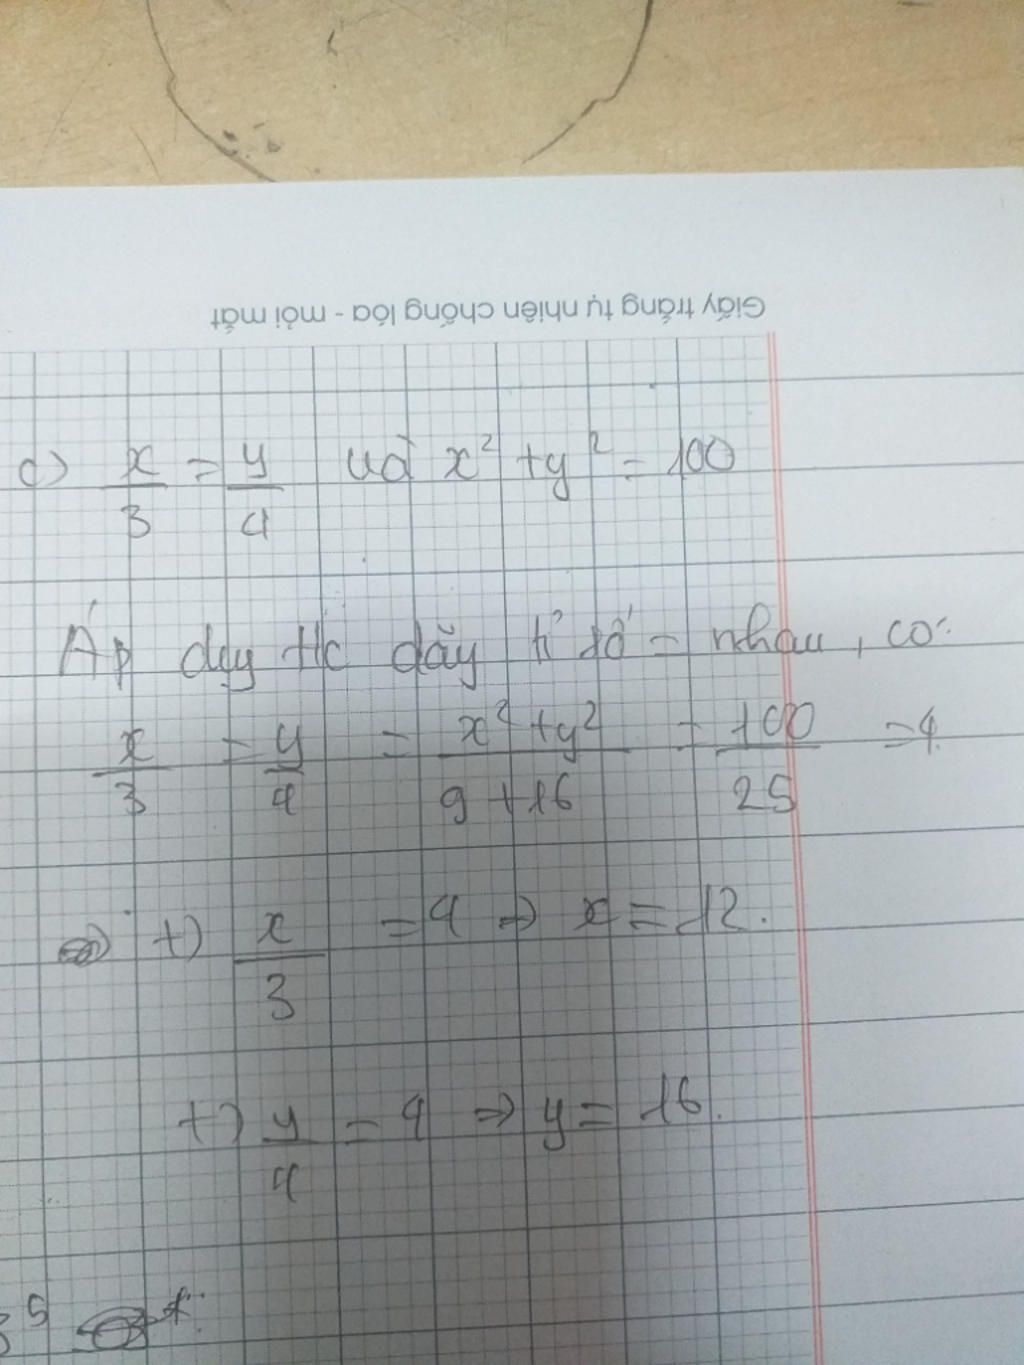 Giấy trắng tự nhiên chống lóa - mỏi mắt
c) x/3 = y/4 và x² + y² = 100
Áp dụg t/c dãy tỉ số = nhau, có:
x/3 = y/4 = x² + y²/9 + 16 = 100/25 = 4.
+) x/3 = 4 => x = 12.
+) y/4 = 4 => y = 16.